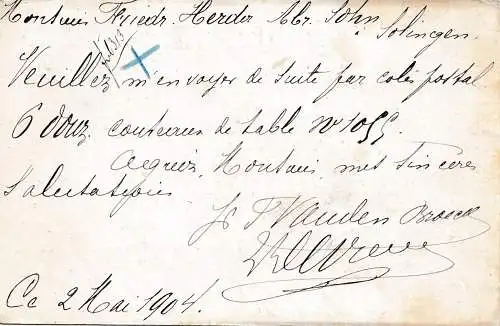 Monsieur Friedr. Herder Abr. Sohn
à Solingen.
Veuillez m'envoyer de suite par colis postal
6 douz. couteaux de table No 1055.
Agréez, Monsieur, mes sincères
salutations
Vanden Broeck
Ce 2 Mai 1904.